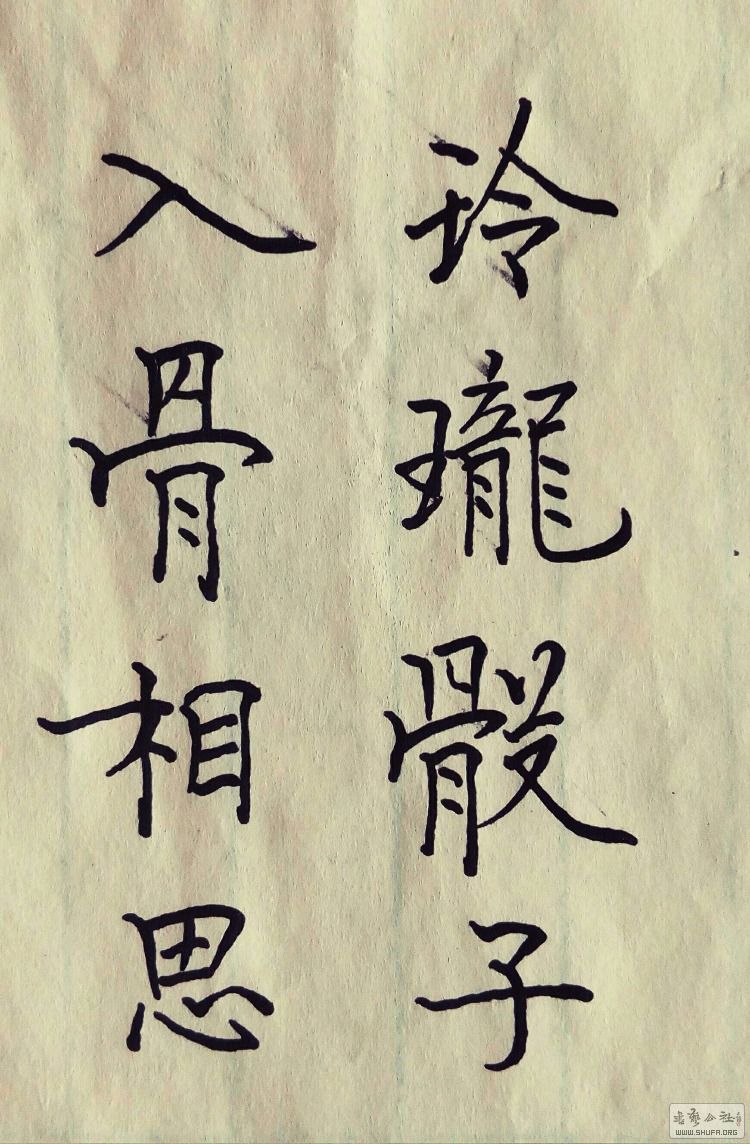 玲瓏骰子
入骨相思
書藝公社
WWW.SHUFA.ORG